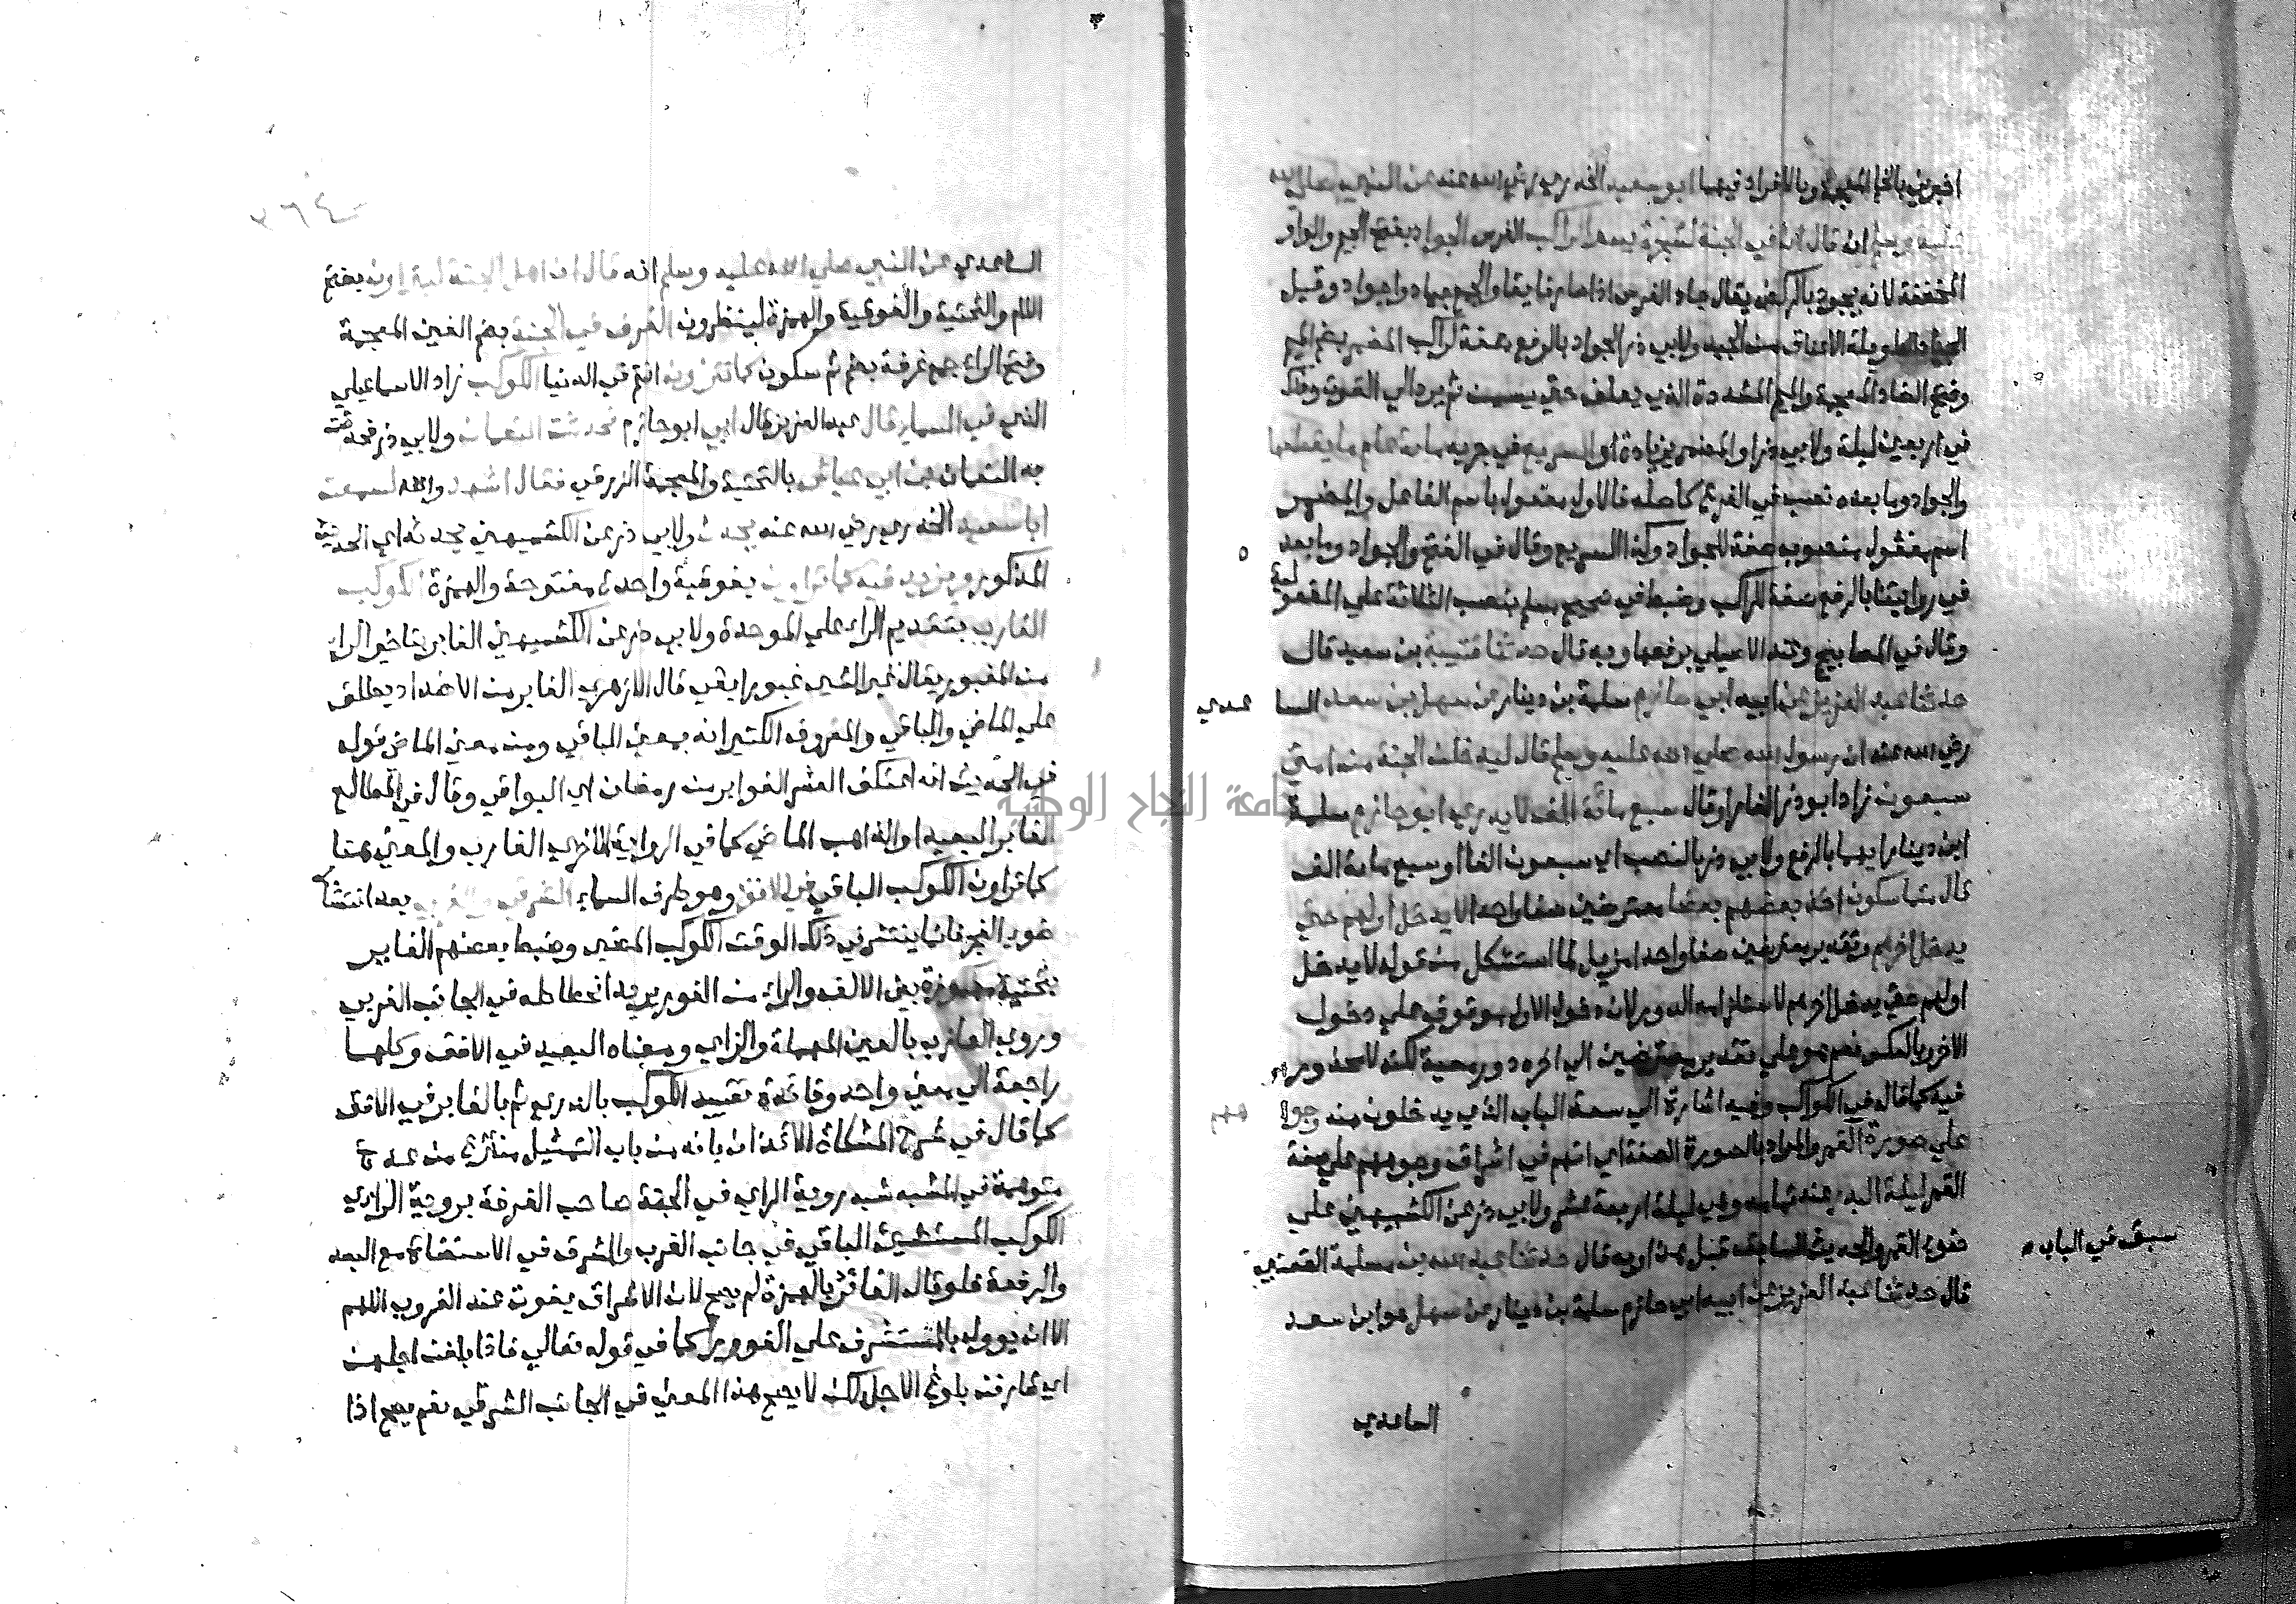 اخبرني بالخاء المعجمة وبالافراد فيهما ابو سعيد الخدري رضي الله عنه عن النبي صلي الله
عليه وسلم انه قال ان في الجنة لشجرة يسير الراكب الفرس الجواد بفتح الجيم والواو
المخففة لانه يجود بالركض يقال جاد الفرس اذا صار فايقا والجمع جياد واجواد وقيل
الجياد الطويلة الاعناق من الجيد ولابي ذر الجواد بالرفع صفة لراكب المضمر بضم الميم
وفتح الضاد المعجمة والميم المشددة الذي يعلف حتي يسمن ثم يرد الي القوت وذلك
في اربعين ليلة ولابي ذر او المضمر بزيادة او السريع في جريه ماية عام ما يقطعها
والجواد وما بعده نصب في الفرع كاصله فالاول مفعول باسم الفاعل والمضمر
اسم مفعول منصوب صفة للجواد وكذا السريع وقال في الفتح والجواد وما بعد
في روايتنا بالرفع صفة للراكب وضبط في صحيح مسلم بنصب الثلاثة علي المفعولية
وقال في المصابيح وعند الاصيلي برفعها وبه قال حدثنا قتيبة بن سعيد قال
حدثنا عبد العزيز عن ابيه ابي حازم سلمة بن دينار عن سهل بن سعد الساعدي
رضي الله عنه ان رسول الله صلي الله عليه وسلم قال ليدخلن الجنة من امتي
سبعون زاد ابو ذر الفا او قال سبع مائة الف لا يدري ابو حازم سلمة
ابن دينار ايهما بالرفع ولابي ذر بالنصب اي سبعون الفا او سبع ماية الف
قال متماسكون اخذ بعضهم بعضا معترضين صفا واحدا لا يدخل اولهم حتي
يدخل اخرهم وتقدير معترضين صفا واحدا مزيل لما استشكل من قوله لا يدخل
اولهم حتي يدخل اخرهم لاستلزامه الدور لان دخول الاول موقوف علي دخول
الاخر وبالعكس نعم هو علي تقدير معترضين الي اخره دور معية لكنه لا محذور
فيه كما قاله في الكواكب وفيه اشارة الي سعة الباب الذي يدخلون منه وجوههم
علي صورة القمر والمراد بالصورة الصفة اي انهم في اشراق وجوههم علي صفة
القمر ليلة البدر عند تمامه وهي ليلة اربعة عشر ولابي ذر عن الكشميهني علي
ضوء القمر والحديث السابق قبل هذا وبه قال حدثنا عبد الله بن مسلمة القعنبي
سبق في الباب
قال حدثنا عبد العزيز عن ابيه ابي حازم سلمة بن دينار عن سهل هو ابن سعد
الساعدي
٣٦٤
الساعدي عن النبي صلي الله عليه وسلم انه قال ان اهل الجنة ليتراون بفتح
اللام والتحتية والفوقية والهمزة لينظرون الغرف في الجنة بضم الغين المعجمة
وفتح الراء جمع غرفة بضم ثم سكون كما تتراون انتم في الدنيا الكوكب زاد الاسماعيلي
الدري في السماء قال عبد العزيز قال ابي ابو حازم فحدثت النعمان ولابي ذر فحدثت
به النعمان بن ابي عياش بالتحتية والمعجمة الزرقي فقال اشهد والله لسمعت
ابا سعيد الخدري رضي الله عنه يحدث ولابي ذر عن الكشميهني يحدثه اي الحديث
المذكور ويزيد فيه كما تراون بفوقية واحدة مفتوحة والهمزة الكوكب
الغارب بتقديم الراء علي الموحدة ولابي ذر عن الكشميهني الغابر بتاخير الراء
من الغبور يقال غبر الشيء غبورا بقي قال الازهري الغابر من الاضداد يطلق
علي الماضي والباقي والمعروف الكثير انه بمعني الباقي ومن معني الماضي قوله
في الحديث انه اعتكف العشر الغوابر من رمضان اي البواقي وقال في المطالع
الغابر البعيد او الذاهب الماضي كما في الرواية الاخري الغارب والمعني هنا
كما تراون الكوكب الباقي في الافق وهو طرف السماء الشرقي والغربي بعد انتشار
ضوء الفجر فانما ينتشر في ذلك الوقت الكوكب المضيء وضبط بعضهم الغاير
بتحتية مهموزة بين الالف والراء من الغور يريد انحطاطه في الجانب الغربي
وروي العازب بالعين المهملة والزاي ومعناه البعيد في الافق وكلها
راجعة الي معني واحد وفائدة تقييد الكوكب بالدري ثم بالغابر في الافق
كما قال في شرح المشكاة الايذان بانه من باب التمثيل منتزع من عدة
متوهمة في المشبه شبه روية الراي في الجنة صاحب الغرفة بروية الرائي
الكوكب المستضيء الباقي في جانب الغرب والشرق في الاستضاة مع البعد
والرفعة فلو قال الغائر بالهمزة لم يصح لان الاشراق يفوت عند الغروب اللهم
الا ان يووله بالمستشرف علي الغور كما في قوله تعالي فاذا بلغن اجلهن
اي شارفن بلوغ الاجل لكن لا يصح هذا المعني في الجانب الشرقي نعم يصح اذا
جامعة النجاح الوطنية